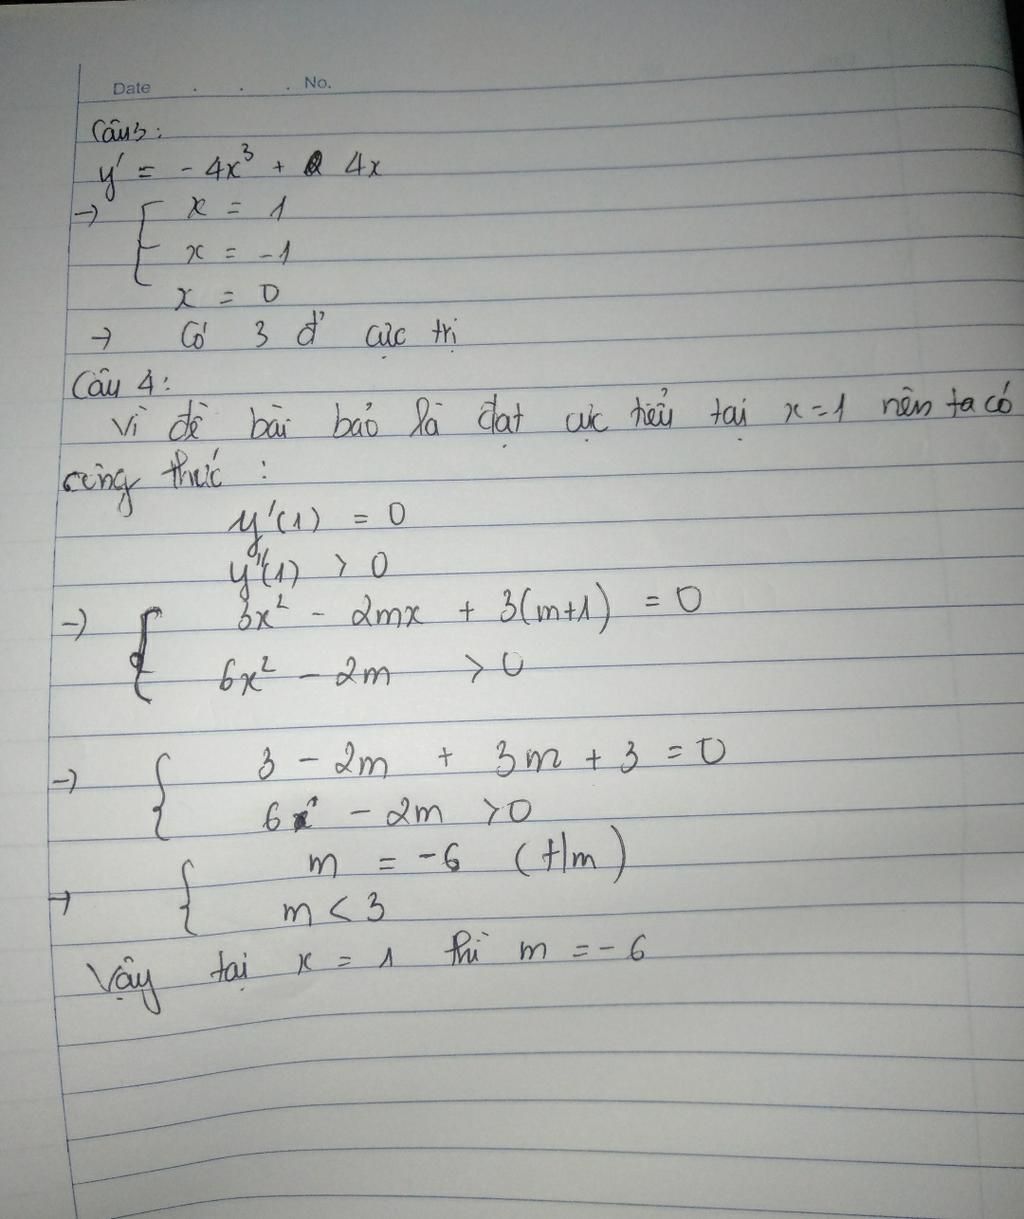 Date . . . No.
Câu3:
y' = - 4x³ + 4x
→ [ x = 1
x = -1
x = 0
→ Có 3 đ' cực trị
Câu 4:
Vì đề bài bảo là đạt cực tiểu tại x=1 nên ta có
công thức :
y'(1) = 0
y''(1) > 0
→ { 3x² - 2mx + 3(m+1) = 0
6x² - 2m > 0
→ { 3 - 2m + 3m + 3 = 0
6 - 2m > 0
→ { m = -6 (t/m)
m < 3
Vậy tại x = 1 thì m = -6